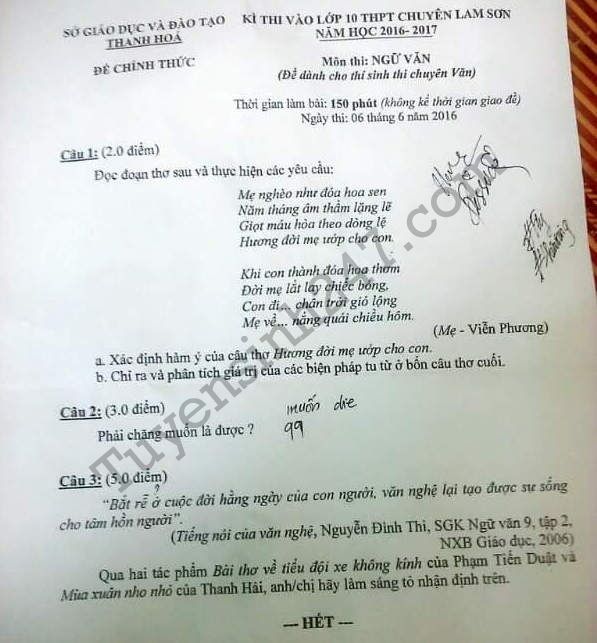 SỞ GIÁO DỤC VÀ ĐÀO TẠO
THANH HOÁ
ĐỀ CHÍNH THỨC
KÌ THI VÀO LỚP 10 THPT CHUYÊN LAM SƠN
NĂM HỌC 2016- 2017
Môn thi: NGỮ VĂN
(Đề dành cho thí sinh thi chuyên Văn)
Thời gian làm bài: 150 phút (không kể thời gian giao đề)
Ngày thi: 06 tháng 6 năm 2016
Câu 1: (2.0 điểm)
Đọc đoạn thơ sau và thực hiện các yêu cầu:
Mẹ nghèo như đóa hoa sen
Năm tháng âm thầm lặng lẽ
Giọt máu hòa theo dòng lệ
Hương đời mẹ ướp cho con.
Khi con thành đóa hoa thơm
Đời mẹ lắt lay chiếc bóng,
Con đi... chân trời gió lộng
Mẹ về... nắng quái chiều hôm.
(Mẹ - Viễn Phương)
a. Xác định hàm ý của câu thơ Hương đời mẹ ướp cho con.
b. Chỉ ra và phân tích giá trị của các biện pháp tu từ ở bốn câu thơ cuối.
Câu 2: (3.0 điểm)
muốn die
Phải chăng muốn là được ?
99
Câu 3: (5.0 điểm)
"Bắt rễ ở cuộc đời hằng ngày của con người, văn nghệ lại tạo được sự sống
cho tâm hồn người".
(Tiếng nói của văn nghệ, Nguyễn Đình Thi, SGK Ngữ văn 9, tập 2,
NXB Giáo dục, 2006)
Qua hai tác phẩm Bài thơ về tiểu đội xe không kính của Phạm Tiến Duật và
Mùa xuân nho nhỏ của Thanh Hải, anh/chị hãy làm sáng tỏ nhận định trên.
--- HẾT ---
Tuyensinh247.com